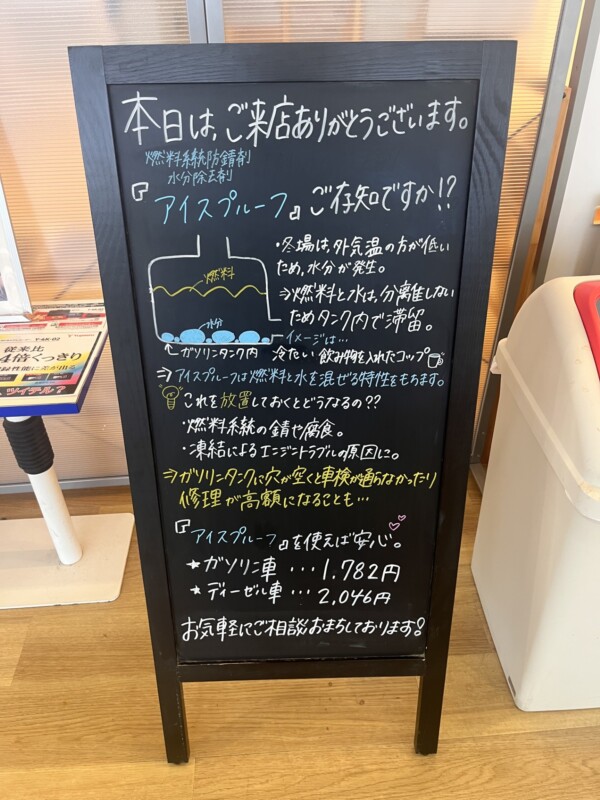 本日は、ご来店ありがとうございます。
燃料系統防錆剤
水分除去剤
『アイスプルーフ』ご存知ですか!?
・冬場は、外気温の方が低い
ため、水分が発生。
⇒燃料と水は、分離しない
ためタンク内で滞留。
燃料
水分
←ガソリンタンク内
イメージは…
冷たい飲み物を入れたコップ
⇒アイスプルーフは燃料と水を混ぜる特性をもちます。
これを放置しておくとどうなるの??
・燃料系統の錆や腐食。
・凍結によるエンジントラブルの原因に。
⇒ガソリンタンクに穴が空くと車検が通らなかったり
修理が高額になることも…
『アイスプルーフ』を使えば安心。
★ガソリン車 … 1.782円
★ディーゼル車 … 2,046円
お気軽にご相談おまちしております!
従来比
4倍くっきり
ツイテル?